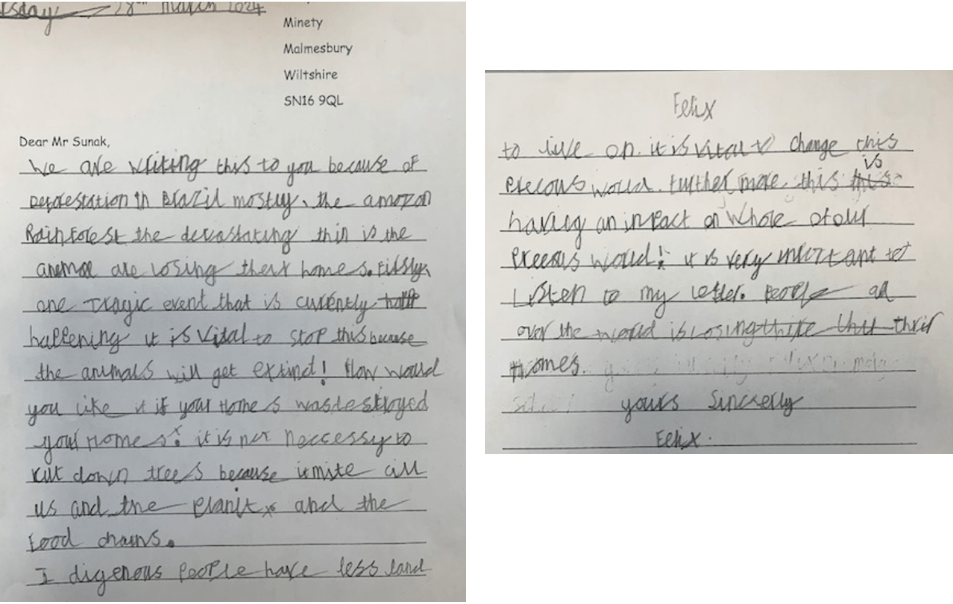 28th March 2024
Minety
Malmesbury
Wiltshire
SN16 9QL
Dear Mr Sunak,
We are writing this to you because of
Deforestation in Brazil mostly. the amozon
Rainforest the devastating thin is the
animal are losing there homes. Firsly
one tragic event that is currently
happening it is vital to stop this because
the animals will get extind! How would
you like it if your Home s was destroyed
your Homes. it is not neccessy to
cut down trees because it mite all
us and the planit and the
food chains.
I digenous people have less land
Felix
to live on. it is vital to change this
precous would. further more this is
having an inpact on whole of our
preecus would! it is very important to
Listen to my letter. People all
over the would is losing their
Homes.
yours Sincrelly
Felix.